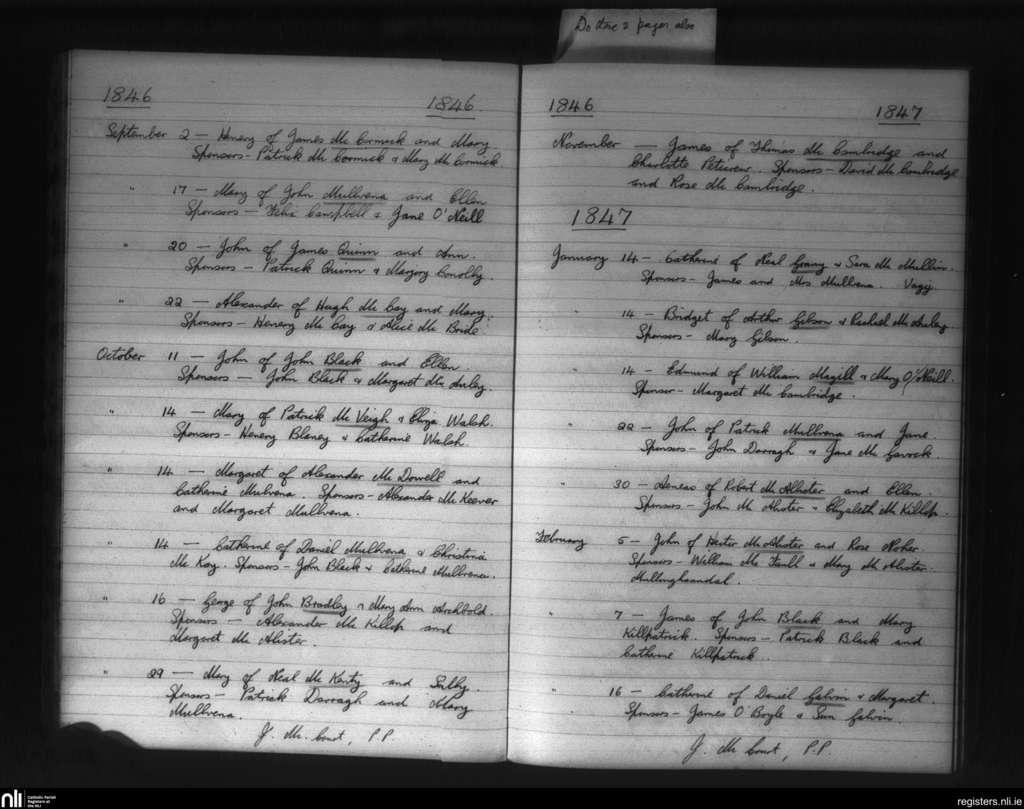 Do these 2 pages also
1846 1846
September 2 — Henery of James Mc Cormick and Mary
Sponsors - Patrick Mc Cormick & Mary Mc Cormick
" 17 — Mary of John Mullvena and Ellen
Sponsors — Felix Campbell & Jane O'Neill
" 20 — John of James Quinn and Ann.
Sponsors — Patrick Quinn & Margory Conolly.
" 22 — Alexander of Hugh Mc Cay and Mary.
Sponsors - Henery Mc Cay & Alice Mc Bride
October 11 — John of John Black and Ellen
Sponsors — John Black & Margaret Mc Auley.
" 14 — Mary of Patrick Mc Veigh & Eliza Walsh.
Sponsors - Henery Blaney & Catherine Walsh.
" 14 — Margaret of Alexander Mc Dowell and
Catherine Mulvena. Sponsors - Alexander Mc Keever
and Margaret Mullvena.
" 14 — Catherine of Daniel Mullvena & Christina
Mc Kay. Sponsors - John Black & Catherine Mullvena.
" 16 — George of John Bradley & Mary Ann Archbold.
Sponsors — Alexander Mc Killop and
Margaret Mc Alister.
" 29 — Mary of Neal Mc Kenty and Sally.
Sponsors - Patrick Darragh and Mary
Mullvena.
J. Mc Court, P.P.
1846 1847
November — James of Thomas Mc Cambridge and
Charlotte. Sponsors - David Mc Cambridge
and Rose Mc Cambridge.
1847
January 14 — Catherine of Neal & Sara Mc Mullin.
Sponsors - James and Mrs Mullvena.
" 14 — Bridget of Arthur Gibson & Rachael Mc Auley.
Sponsors - Mary Gibson.
" 14 — Edmund of William Magill & Mary O'Neill.
Sponsor - Margaret Mc Cambridge.
" 22 — John of Patrick Mullvena and Jane.
Sponsors - John Darragh & Jane Mc Gavock.
" 30 — Aeneas of Robert Mc Alister and Ellen.
Sponsors - John Mc Alister & Elizabeth Mc Killop.
February 5 — John of Hector Mc Alister and Rose
Sponsors - William Mc & Mary Mc Alister.
" 7 — James of John Black and Mary
Killpatrick. Sponsors - Patrick Black and
Catherine Killpatrick.
" 16 — Catherine of Daniel Galvin & Margaret.
Sponsors - James O'Boyle & Galvin.
J. Mc Court, P.P.
nli Catholic Parish
Registers at
the NLI
registers.nli.ie